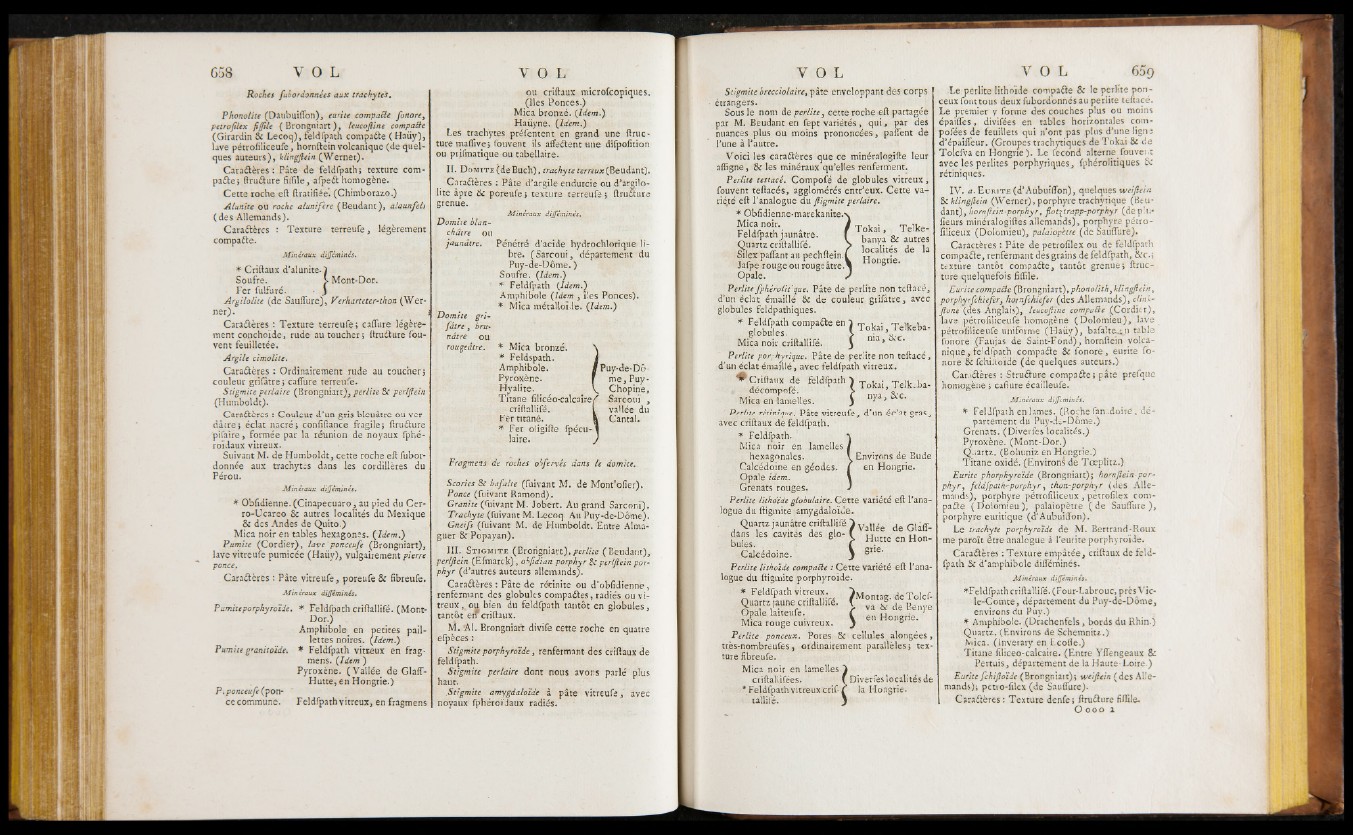 658 VOL
Roches subordonnées aux trachytes.
Phonolite (Daubuisson), eurite compacte sonore,
petrosilex fissile (Brongniart), leucostine compacte
(Girardin & Lecoq), feldspath compacte (Haüy),
lave pétrosiliceuse, hornstein volcanique (de quel-
ques auteurs), klingstein (Werner).
Caractères : Pâte de feldspath; texture com-
pacte; structure fissile, aspect homogène.
Cette roche est stratifiée. (Chimborazo.)
Alunite ou roche alunifère (Beudant), alaunfels
(des Allemands).
Caractères : Texture terreuse, légèrement
compacte.
Minéraux disséminés.
* Cristaux d'alunite.
Soufre. } Mont-Dor.
Fer sulfuré.
Argilolite (de Saussure), Verharteter-thon (Wer-
ner).
Caractères : Texture terreuse; cassure légère-
ment conchoïde, rude au toucher; structure sou-
vent feuilletée.
Argile cimolite.
Caractères : Ordinairement rude au toucher;
couleur grisâtre; cassure terreuse.
Stigmite perlaire (Brongniart), perlite & perlstein
(Humboldt).
Caractères : Couleur d'un gris bleuâtre ou ver
dâtre; éclat nacré; consistance fragile; structure
pisaire, formée par la réunion de noyaux sphé-
roïdaux vitreux.
Suivant M. de Humboldt, cette roche est subor-
donnée aux trachytes dans les cordillères du
Pérou.
Minéraux disséminés.
* Obsidienne. (Cinapecuaro, au pied du Cer-
ro-Ucareo & autres localités du Mexique
& des Andes de Quito.)
Mica noir en tables hexagones. (Idem.)
Pumite (Cordier), lave ponceuse (Brongniart),
lave vitreuse pumicée (Haüy), vulgairement pierre
ponce.
Caractères : Pâte vitreuse, poreuse & fibreuse.
Minéraux disséminés.
Pumite porphyroïde. * Feldspath cristallisé. (Mont-
Dor.)
Amphibole en petites pail-
lettes noires. (Idem.)
Pumite granitoïde. * Feldspath vitreux en frag-
mens. (Idem)
Pyroxène. (Vallée de Glass-
Hutte, en Hongrie.)
P. ponceuse (pon-
ce commune. Feldspath vitreux, en fragmens
VOL
ou cristaux microscopiques.
(Iles Ponces.)
Mica bronzé. (Idem.)
Haüyne. (Idem.)
Les trachytes présentent en grand une struc-
ture massive; souvent ils affectent une disposition
ou prismatique ou tabellaire.
II. DOMITE (de Buch), trachyte terreux (Beudant).
Caractères : Pâte d'argile endurcie ou d'argilo-
lite âpre & poreuse; texture terreuse; structure
grenue.
Minéraux disséminés.
Domite blan-
châtre ou
jaunâtre. Pénétré d'acide hydrochlorique li-
bre. (Sarcoui, département du
Puy-de-Dôme.)
Soufre. (Idem.)
* Feldspath (Idem.)
Amphibole (Idem, îles Ponces).
* Mica métalloïde. (Idem.)
Domite gri-
sâtre, bru-
nâtre ou
rougeâtre. * Mica bronzé.
* Feldspath.
Amphibole.
Pyroxène.
Hyalite.
Titane silicéo-calcaire
cristallisé.
Fer titané.
* Fer oligiste spécu-
laire.
} Puy-de-Dô-
me, Puy-
Chopine,
Sarcoui,
vallée du
Cantal.
Fragmens de roches observés dans le domite.
Scories & basalte (suivant M. de Montlosier).
Ponce (suivant Ramond).
Granite (suivant M. Jobert. Au grand Sarcoui).
Trachyte (suivant M. Lecoq Au Puy-de-Dôme).
Gneiss (suivant M. de Humboldt. Entre Alma-
guer & Popayan).
III. STIGMITE (Brongniart), perlite (Beudant),
perlstein (Esmarck), obsidian porphyr & perlstein por-
phyr (d'autres auteurs allemands).
Caractères : Pâte de rétinite ou d'obsidienne,
renfermant des globules compactes, radiés ou vi-
treux, ou bien du feldspath tantôt en globules,
tantôt en cristaux.
M. Al. Brongniart divise cette roche en quatre
espèces :
Stigmite porphyroïde, renfermant des cristaux de
feldspath.
Stigmite perlaire dont nous avons parlé plus
haut.
Stigmite amygdaloïde à pâte vitreuse, avec
noyaux sphéroïdaux radiés.
VOL
Stigmite brecciolaire, pâte enveloppant des corps
étrangers.
Sous le nom de perlite, cette roche est partagée
par M. Beudant en sept variétés, qui, par des
nuances plus ou moins prononcées, passent de
l'une à l'autre.
Voici les caractères que ce minéralogiste leur
assigne, & les minéraux qu'elles renferment.
Perlite testacé. Composé de globules vitreux,
souvent testacés, agglomérés entr'eux. Cette va-
riété est l'analogue du stigmite perlaire.
* Obsidienne-marekanite.
Mica noir.
Feldspath jaunâtre.
Quartz cristallisé.
Silex passant au pechstein.
Jaspe rouge ou rougeâtre.
Opale.
} Tokai, Telke-
banya & autres
localités de la
Hongrie.
Perlite sphérolitique. Pâte de perlite non testacé,
d'un éclat émaillé & de couleur grisâtre, avec
globules feldspathiques.
* Feldspath compacte en
globules.
Mica noir cristallisé.
} Tokai, Telkeba-
nia, &c.
Perlite porphyrique. Pâte de perlite non testacé,
d'un éclat émaillé, avec feldspath vitreux.
* Cristaux de feldspath
décomposé.
Mica en lamelles.
} Tokai, Telkeba-
nya, &c.
Perlite rétinique. Pâte vitreuse, d'un éclat gras,
avec cristaux de feldspath.
* Feldspath.
Mica noir en lamelles
hexagonales.
Calcédoine en géodes.
Opale idem.
Grenats rouges.
} Environs de Bude
en Hongrie.
Perlite lithoïde globulaire. Cette variété est l'ana-
logue du stigmite amygdaloïde.
Quartz jaunâtre cristallisé
dans les cavités des glo-
bules.
Calcédoine.
} Vallée de Glass-
Hutte en Hon-
grie.
Perlite lithoïde compacte : Cette variété est l'ana-
logue du stigmite porphyroïde.
* Feldspath vitreux.
Quartz jaune cristallisé.
Opale laiteuse.
Mica rouge cuivreux.
} Montag. de Tolcs-
va & de Penye
en Hongrie.
Perlite ponceux. Pores & cellules alongées,
très-nombreuses, ordinairement paralleles; tex-
ture fibreuse.
Mica noir en lamelles
cristallisées.
* Feldspath vitreux cris-
tallisé.
} Diverses localités de
la Hongrie.
VOL 659
Le perlite lithoïde compacte & le perlite pon-
ceux sont tous deux subordonnés au perlite testacé.
Le premier y forme des couches plus ou moins
épaisses, divisées en tables horizontales com-
posées de feuillets qui n'ont pas plus d'une ligne
d'épaisseur. (Groupes trachytiques de Tokai & de
Tolcsva en Hongrie). Le second alterne souvent
avec les perlites porphyriques, sphérolitiques &
rétiniques.
IV. a. EURITE (d'Aubuisson), quelques weisstein
& klingstein (Werner), porphyre trachytique (Beu-
dant), hornstein-porphyr, flotztrapp-porphyr (de plu-
sieurs minéralogistes allemands), porphyre pétro-
siliceux (Dolomieu), palaiopètre (de Saussure).
Caractères : Pâte de petrosilex ou de feldspath
compacte, renfermant des grains de feldspath, &c.;
texture tantôt compacte, tantôt grenue; struc-
ture quelquefois fissile.
Eurite compacte (Brongniart), phonolith, klingstein,
porphyrschiefer, hornschiefer (des Allemands), clink-
stone (des Anglais), leucostine compacte (Cordier),
lave pétrosiliceuse homogène (Dolomieu), lave
pétrosiliceuse uniforme (Haüy), basalte en table
sonore (Faujas de Saint-Fond), hornstein volca-
nique, feldspath compacte & sonore, eurite so-
nore & schistoïde (de quelques auteurs.)
Caractères : Structure compacte; pâte presque
homogène; cassure écailleuse.
Minéraux disséminés.
* Feldspath en lames. (Roche sanadoire, dé-
partement du Puy-de-Dôme.)
Grenats. (Diverses localités.)
Pyroxène. (Mont-Dor.)
Quartz. (Bohunitz en Hongrie.)
Titane oxidé. (Environs de Tœplitz.)
Eurite phorphyroïde (Brongniart); hornstein-por-
phyr, feldspath-porphyr, thon-porphyr (des Alle-
mands), porphyre pétrosiliceux, pétrosilex com-
pacte (Dolomieu), palaiopètre (de Saussure),
porphyre euritique (d'Aubuisson).
Le trachyte porphyroïde de M. Bertrand-Roux
me paroît être analogue à l'eurite porphyroïde.
Caractères : Texture empâtée, cristaux de feld-
spath & d'amphibole disséminés.
Minéraux disséminés.
*Feldspath cristallisé. (Four-Labrouc, près Vic-
le-Comte, département du Puy-de-Dôme,
environs du Puy.)
* Amphibole. (Drachenfels, bords du Rhin.)
Quartz. (Environs de Schemnitz.)
Mica. (Inverary en Ecosse.)
Titane siliceo-calcaire. (Entre Yssengeaux &
Pertuis, département de la Haute-Loire.)
Eurite schistoïde (Brongniart); weisstein (des Alle-
mands); petro-silex (de Saussure).
Caractères : Texture dense; structure fissile.
Oooo 2